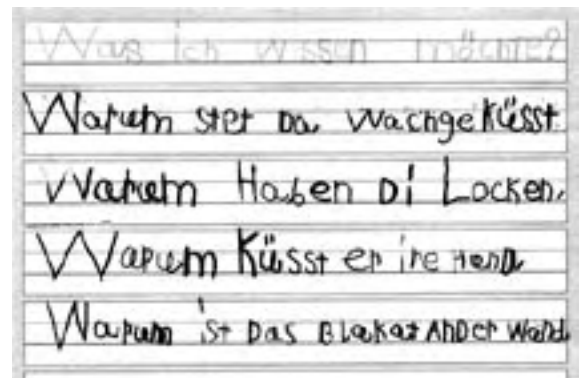 Was ich wissen möchte?
Warum stet Da Wachge Küsst
Warum Haben Di Locken.
Warum Küsst er ire Hand
Warum ist Das Blakat An Der Wand.